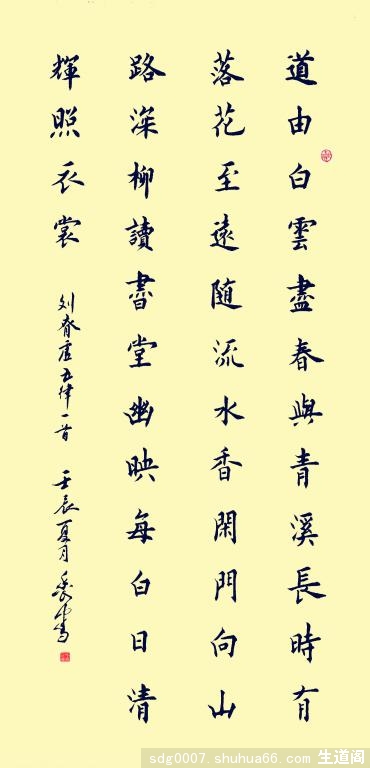 道由白雲盡春與青溪長時有
落花至遠隨流水香閑門向山
路深柳讀書堂幽映每白日清
輝照衣裳
刘眘虚五律一首 壬辰夏月
sdg0007.shuhua66.com 生道阁